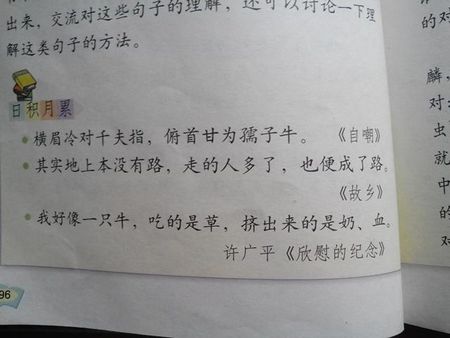 出来，交流对这些句子的理解，还可以讨论一下理
解这类句子的方法。
日积月累
横眉冷对千夫指，俯首甘为孺子牛。 《自嘲》
其实地上本没有路，走的人多了，也便成了路。
《故乡》
我好像一只牛，吃的是草，挤出来的是奶、血。
许广平《欣慰的纪念》
96
的对
麟，
对
虫
就
中
的
对